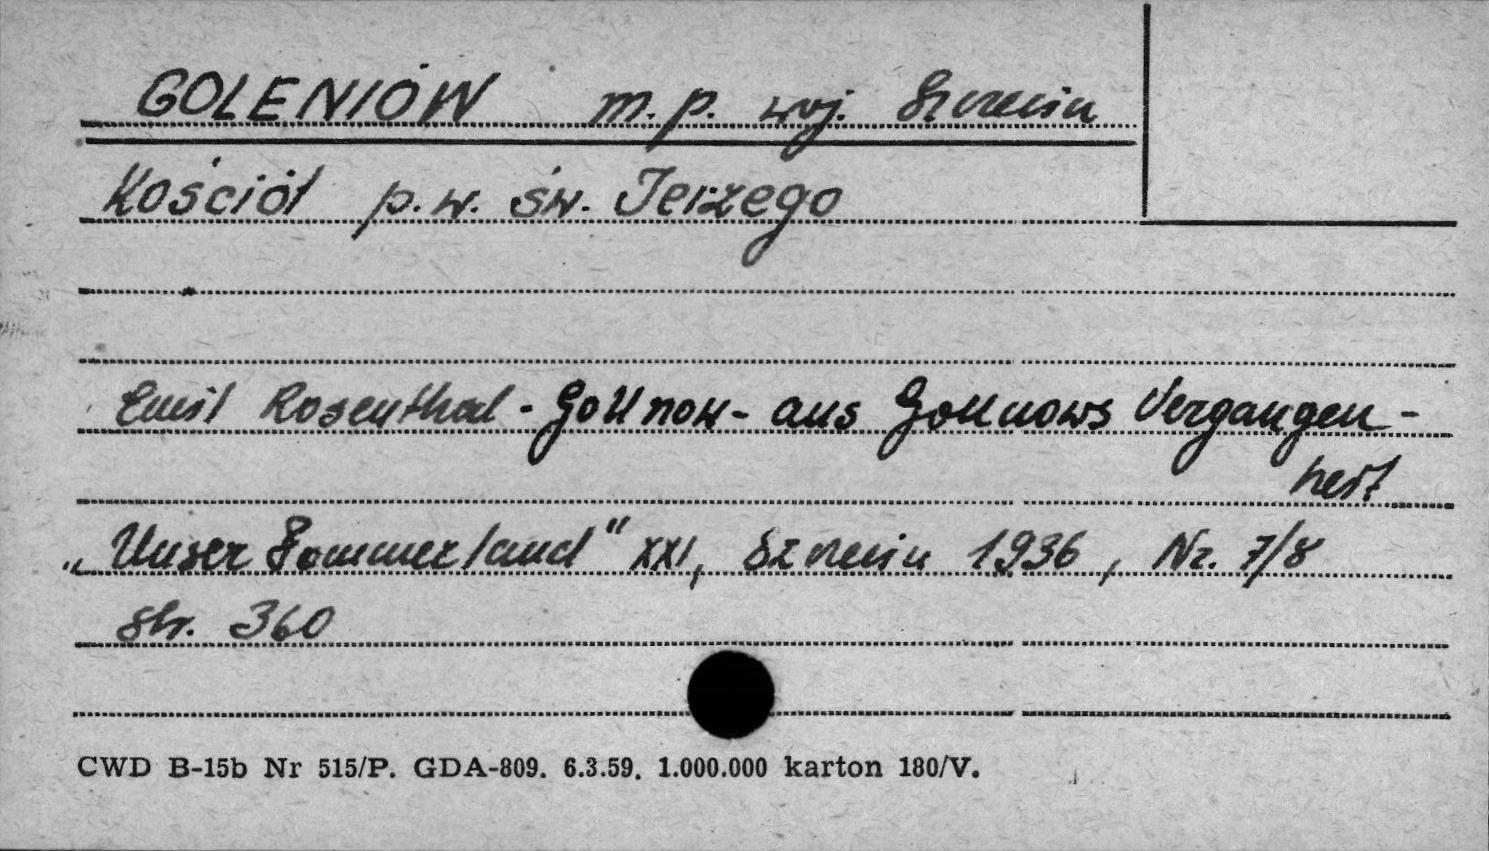 GOLENIÓW m.p. woj. Szczecin
Kościół p.w. św. Jerzego
Emil Rosenthal - Gollnow - aus Gollnows Vergangen-
heit
„Unser Pommerland" XXI, Szczecin 1936, Nr. 7/8
str. 360
CWD B-15b Nr 515/P. GDA-809. 6.3.59. 1.000.000 karton 180/V.